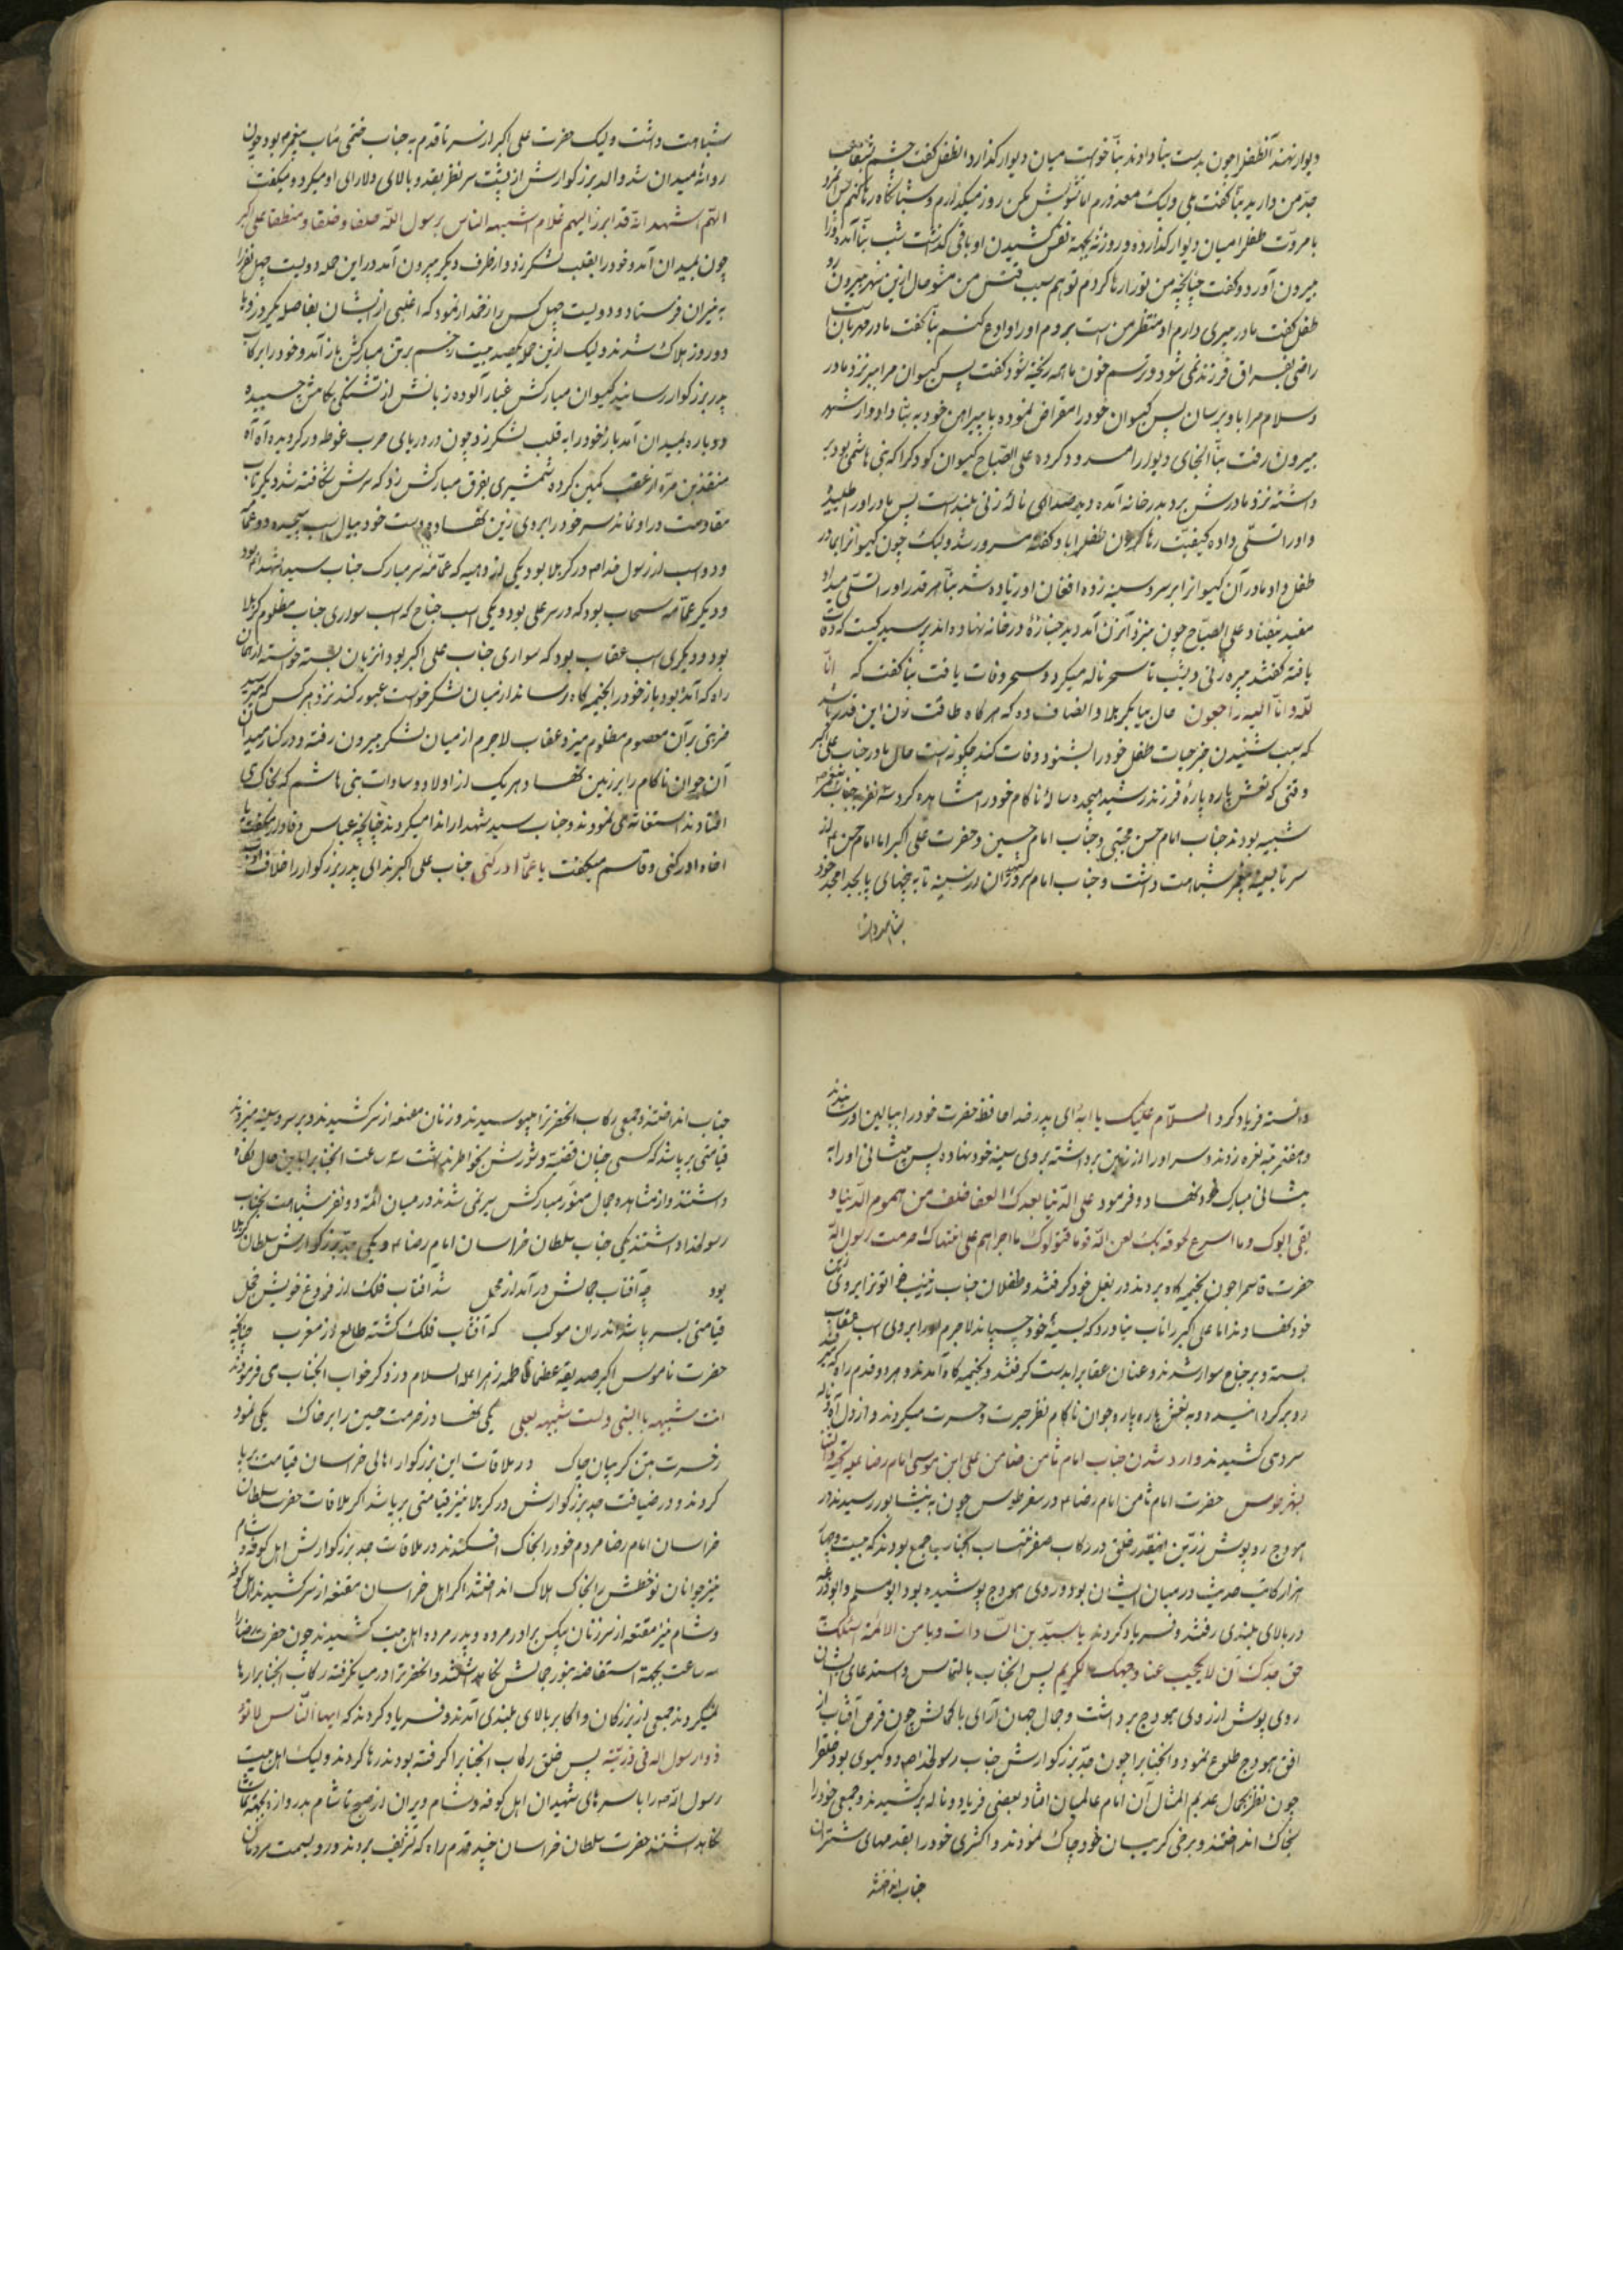 دیوار نهند آنطفل را چون بدست بنا دادند بنا خواست میان دیوار گذارد آنطفل گفت چشم شفاعت
جد من دارید بنا گفت بلی ولیک معذورم اما تشویش مکن روزنه میگذارم و شبانگاه رها کنم پس
با مروت طفل را میان دیوار گذارده و روزنه بجهة نفس کشیدن او باقی گذاشت شب بنا آمده او را
بیرون آورد و گفت چنانچه من تو را رها کردم تو هم سبب قتل من مشو حال ازین شهر بیرون رو
طفل گفت مادر پیری دارم او منتظر من است بروم او را وداع کنم بنا گفت مادر مهربان
راضی بفراق فرزند نمی شود و ترسم خون ما همه ریخته شود گفت پس گیسوان مرا ببر نزد مادر
و سلام مرا باو برسان پس گیسوان خود را مقراض نموده با پیراهن خود به بنا داد و از شهر
بیرون رفت بنا آنجای دیوار را مسدود کرده علی الصباح گیسوان کودک را که بنی هاشمی بود بر
داشته نزد مادرش برد بدر خانه آمده دید صدای ناله زنی بلند است پس مادر او را طلبیده
و او را تسلی داده کیفیت رها کردن طفل را باو گفته مسرور شد ولیک چون گیسوانرا بمادر
طفل داد مادر آن گیسوانرا بر سر و سینه زده افغان او زیاده شد بنا هر قدر او را تسلی میداد
مفید نیفتاد علی الصباح چون بنزد آنزن آمد دید جنازۀ در خانه نهاده اند پرسید کیست که وفات
یافته گفتند پیره زنی دیشب تا سحر ناله میکرد و سحر وفات یافت بنا گفت که انا
لله و انا الیه راجعون حال بیا بکربلا و انصاف ده که هرگاه طاقت زن این قدر باشد
که بسبب شنیدن خبر حیات طفل خود را بشنود و وفات کند چگونه است حال مادر جناب علی اکبر
وقتی که نعش پاره پارۀ فرزند رشید هیجده سالۀ ناکام خود را مشاهده کرد سه نفر بجناب پیغمبر
شبیه بودند جناب امام حسن مجتبی و جناب امام حسین و حضرت علی اکبر اما امام حسن از
سر تا بسینه به پیغمبر شباهت داشت و جناب امام حسین از سینه تا به پنجهای پا بجد امجد خود
شباهت داشت
شباهت داشت ولیک حضرت علی اکبر از سر تا قدم به جناب ختمی مآب پیغمبر بود چون
روانۀ میدان شد والد بزرگوارش از پشت سر نظر بقد و بالای دلارای او میکرد و میگفت
اللهم اشهد انه قد ابرز الیهم غلام اشبه الناس برسول الله خلقا و خلقا و منطقا علی اکبر
چون بمیدان آمد و خود را بقلب لشکر زد و از طرف دیگر بیرون آمد در این حمله دویست چهل نفر را
به نیران فرستاد و دویست چهل کس را زخمدار نمود که اغلبی از ایشان بفاصله یکروز
دو روز هلاک شدند ولیک ازین حمله یکصد بیست زخم بر تن مبارکش باز آمد و خود را برکاب
پدر بزرگوار رسانید گیسوان مبارکش غبار آلوده زبانش از تشنگی بکامش چسبیده
دوباره بمیدان آمد باز خود را به قلب لشکر زد چون در دریای حرب غوطه ور گردیده آه آه
منقذ بن مره از عقب کمین کرده شمشیری بفرق مبارکش زد که سرش شکافته شد دیگر تاب
مقاومت در او نماند سر خود را بروی زین نهاد و دست خود بیال اسب پیچیده دو عمامه
و دو اسب از رسول خدا در کربلا بود یکی لزدمیه که عمامه سر مبارک جناب سید الشهدا بود
و دیگر عمامه سحاب بود که در سر علی بود و یکی اسب جناح که اسب سواری جناب مظلوم کربلا
بود و دیگری اسب عقاب بود که سواری جناب علی اکبر بود انزبان بسته خواسته از همان
راه که آمده بود باز خود را بخیمه گاه رساند از میان لشکر خواست عبور کند نزد هر کس که میرسید
ضربتی بر آن معصوم مظلوم میزد عقاب لاجرم از میان لشکر بیرون رفته و در کنار میدان
آن جوان ناکام را بر زمین نهاد هر یک از اولاد و سادات بنی هاشم که بخاک
افتادند استغاثه می نمودند و جناب سید شهدا را ندا میکردند چنانچه عباس وفادار میگفت یا
اخاه ادرکنی و قاسم میگفت یا عماه ادرکنی جناب علی اکبر ندای پدر بزرگوار را خلاف ادب
دانسته فریاد کرد السلام علیک یا ابه ای پدر خدا حافظ حضرت خود را ببالین او رسانیدند
و هفت مرتبه نعره زدند و سر او را از زمین برداشته بروی سینه خود نهاده پس پیشانی او را به
پیشانی مبارک خود نهاد و فرمود علی الدنیا بعدک العفا خلف من هموم الدنیا و
بقی ابوک و ما اسرع لحوقه بک لعن الله قوما قتلوک ما اجراهم علی انتهاک حرمت رسول الله
حضرت قاسم را چون بخیمه گاه بردند در بغل خود گرفتند و طفلان جناب زینب خواتونرا بروی زین
خود نهاد و اما علی اکبر را تاب نیاورد که بسینۀ خود چسپاند لاجرم او را بروی اسب عقاب
بسته و بر جناح سوار شدند و عنان عقاب را بدست گرفتند و بخیمه گاه آمدند و هر دو قدم راه که
رو برگردانیده و به نعش پاره پاره جوان ناکام نظر حیرت و حسرت میکردند و از دل آه و ناله
سردی کشیدند وارد شدن جناب امام ثامن ضامن علی ابن موسی امام رضا علیه التحیة والثنا
بشهر طوس حضرت امام ثامن امام رضا در سفر طوس چون به نیشابور رسیدند در
هودج روپوش زرین اینقدر خلق در رکاب ظفر انتساب آنجناب جمع بودند که بیست و چهار
هزار کاتب حدیث در میان ایشان بود و روی هودج پوشیده بود ابو مسلم و ابو ذرعه
در بالای بلندی رفتند و فریاد کردند یا سید بن السادات و یا من الائمة اسئلک
حق جدک ان لا یحجب عنا وجهک الکریم پس آنجناب بالتماس و استدعای ایشان
روی پوش از روی هودج برداشت و جمال جهان آرای با کمالش چون قرص آفتاب از
افق هودج طلوع نمود و آنجناب را چون جد بزرگوارش جناب رسول خدا دو گیسوی بود خلق را
چون نظر بجمال عدیم المثال آن امام عالمیان افتاد بعضی فریاد و ناله برکشیدند و جمعی خود را
بخاک انداختند و برخی گریبان خود چاک نمودند و اکثری خود را بقدمهای شتران
جناب انداختند
جناب انداختند و جمعی رکاب آنحضرترا میبوسیدند و زنان مقنعه از سر کشیدند و بر سر و سینه میزدند
قیامتی بر پا شد که کسی چنان قضیه و شورش بخواطر نداشت سه ساعت آنجناب را باین حال نگاه
داشتند و از مشاهده جمال منور مبارکش سیر نمی شدند در میان ائمه دو نفر شباهت بجناب
رسول خدا داشتند یکی جناب سلطان خراسان امام رضا و یکی جد بزرگوارش سلطان کربلا
بود چه آفتاب جمالش در آمد از محمل شد آفتاب فلک از فروغ خویش خجل
قیامتی بسر پا شد اندران موکب که آفتاب فلک گشته طالع از مغرب چنانچه
حضرت ناموس اکبر صدیقه عظما فاطمه زهرا علیه السلام در ذکر خواب آنجناب می فرمودند
انت شبیه با النبی و لست شبیهه بعلی یکی نهاد ز حرمت جبین را بر خاک یکی نمود
ز حسرت بتن گریبان چاک در ملاقات این بزرگوار اهالی خراسان قیامت بر پا
کردند و در ضیافت جد بزرگوارش در کربلا نیز قیامتی بر پا شد اگر ملاقات حضرت سلطان
خراسان امام رضا مردم خود را بخاک افکندند در ملاقات جد بزرگوارش اهل کوفه و شام
نیز جوانان نوخطش را بخاک هلاک انداختند اگر اهل خراسان مقنعه از سر کشیدند اهل کوفه
و شام نیز مقنعه از سر زنان بیکس برادر مرده و پدر مرده اهل بیت کشیدند چون حضرت رضا را
سه ساعت بجهة استفاضه بنور جمالش نگاهداشتند و آنحضرترا در میان گرفته رکاب آنجناب را رها
نمیکردند جمعی از بزرگان و اکابر بالای بلندی آمدند و فریاد کردند که ایها الناس لا تؤ
ذوا رسول الله فی ذریته پس خلق رکاب آنجناب را گرفته بودند رها کردند ولیک اهل بیت
رسول الله را با سرهای شهیدان اهل کوفه و شام ویران از صبح تا شام بدروازه بجهة تماشا
نگاهداشتند حضرت سلطان خراسان چند قدم راه که تشریف بردند رو بسمت مردمان